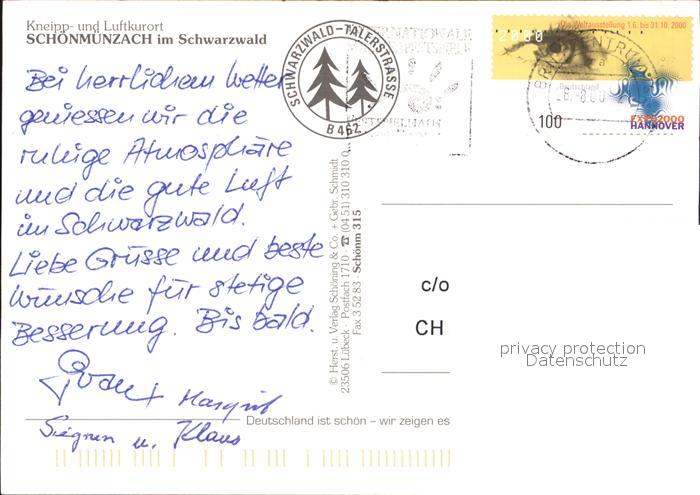 Kneipp- und Luftkurort
SCHÖNMÜNZACH im Schwarzwald
Bei herrlichem Wetter
geniessen wir die
ruhige Atmosphäre
und die gute Luft
im Schwarzwald.
Liebe Grüsse und beste
Wünsche für stetige
Besserung. Bis bald.
Margrit
Siegrun u. Klaus
SCHWARZWALD-TÄLERSTRASSE
B 462
© Herst. u. Verlag Schöning & Co. + Gebr. Schmidt
23506 Lübeck · Postfach 1710 · ☎ (04 51) 310 310 0
Fax 3 52 83 · Schönm 315
Die Weltausstellung 1.6. bis 31.10. 2000
2000
Deutschland
100
EXPO2000
HANNOVER
c/o
CH
privacy protection
Datenschutz
Deutschland ist schön – wir zeigen es